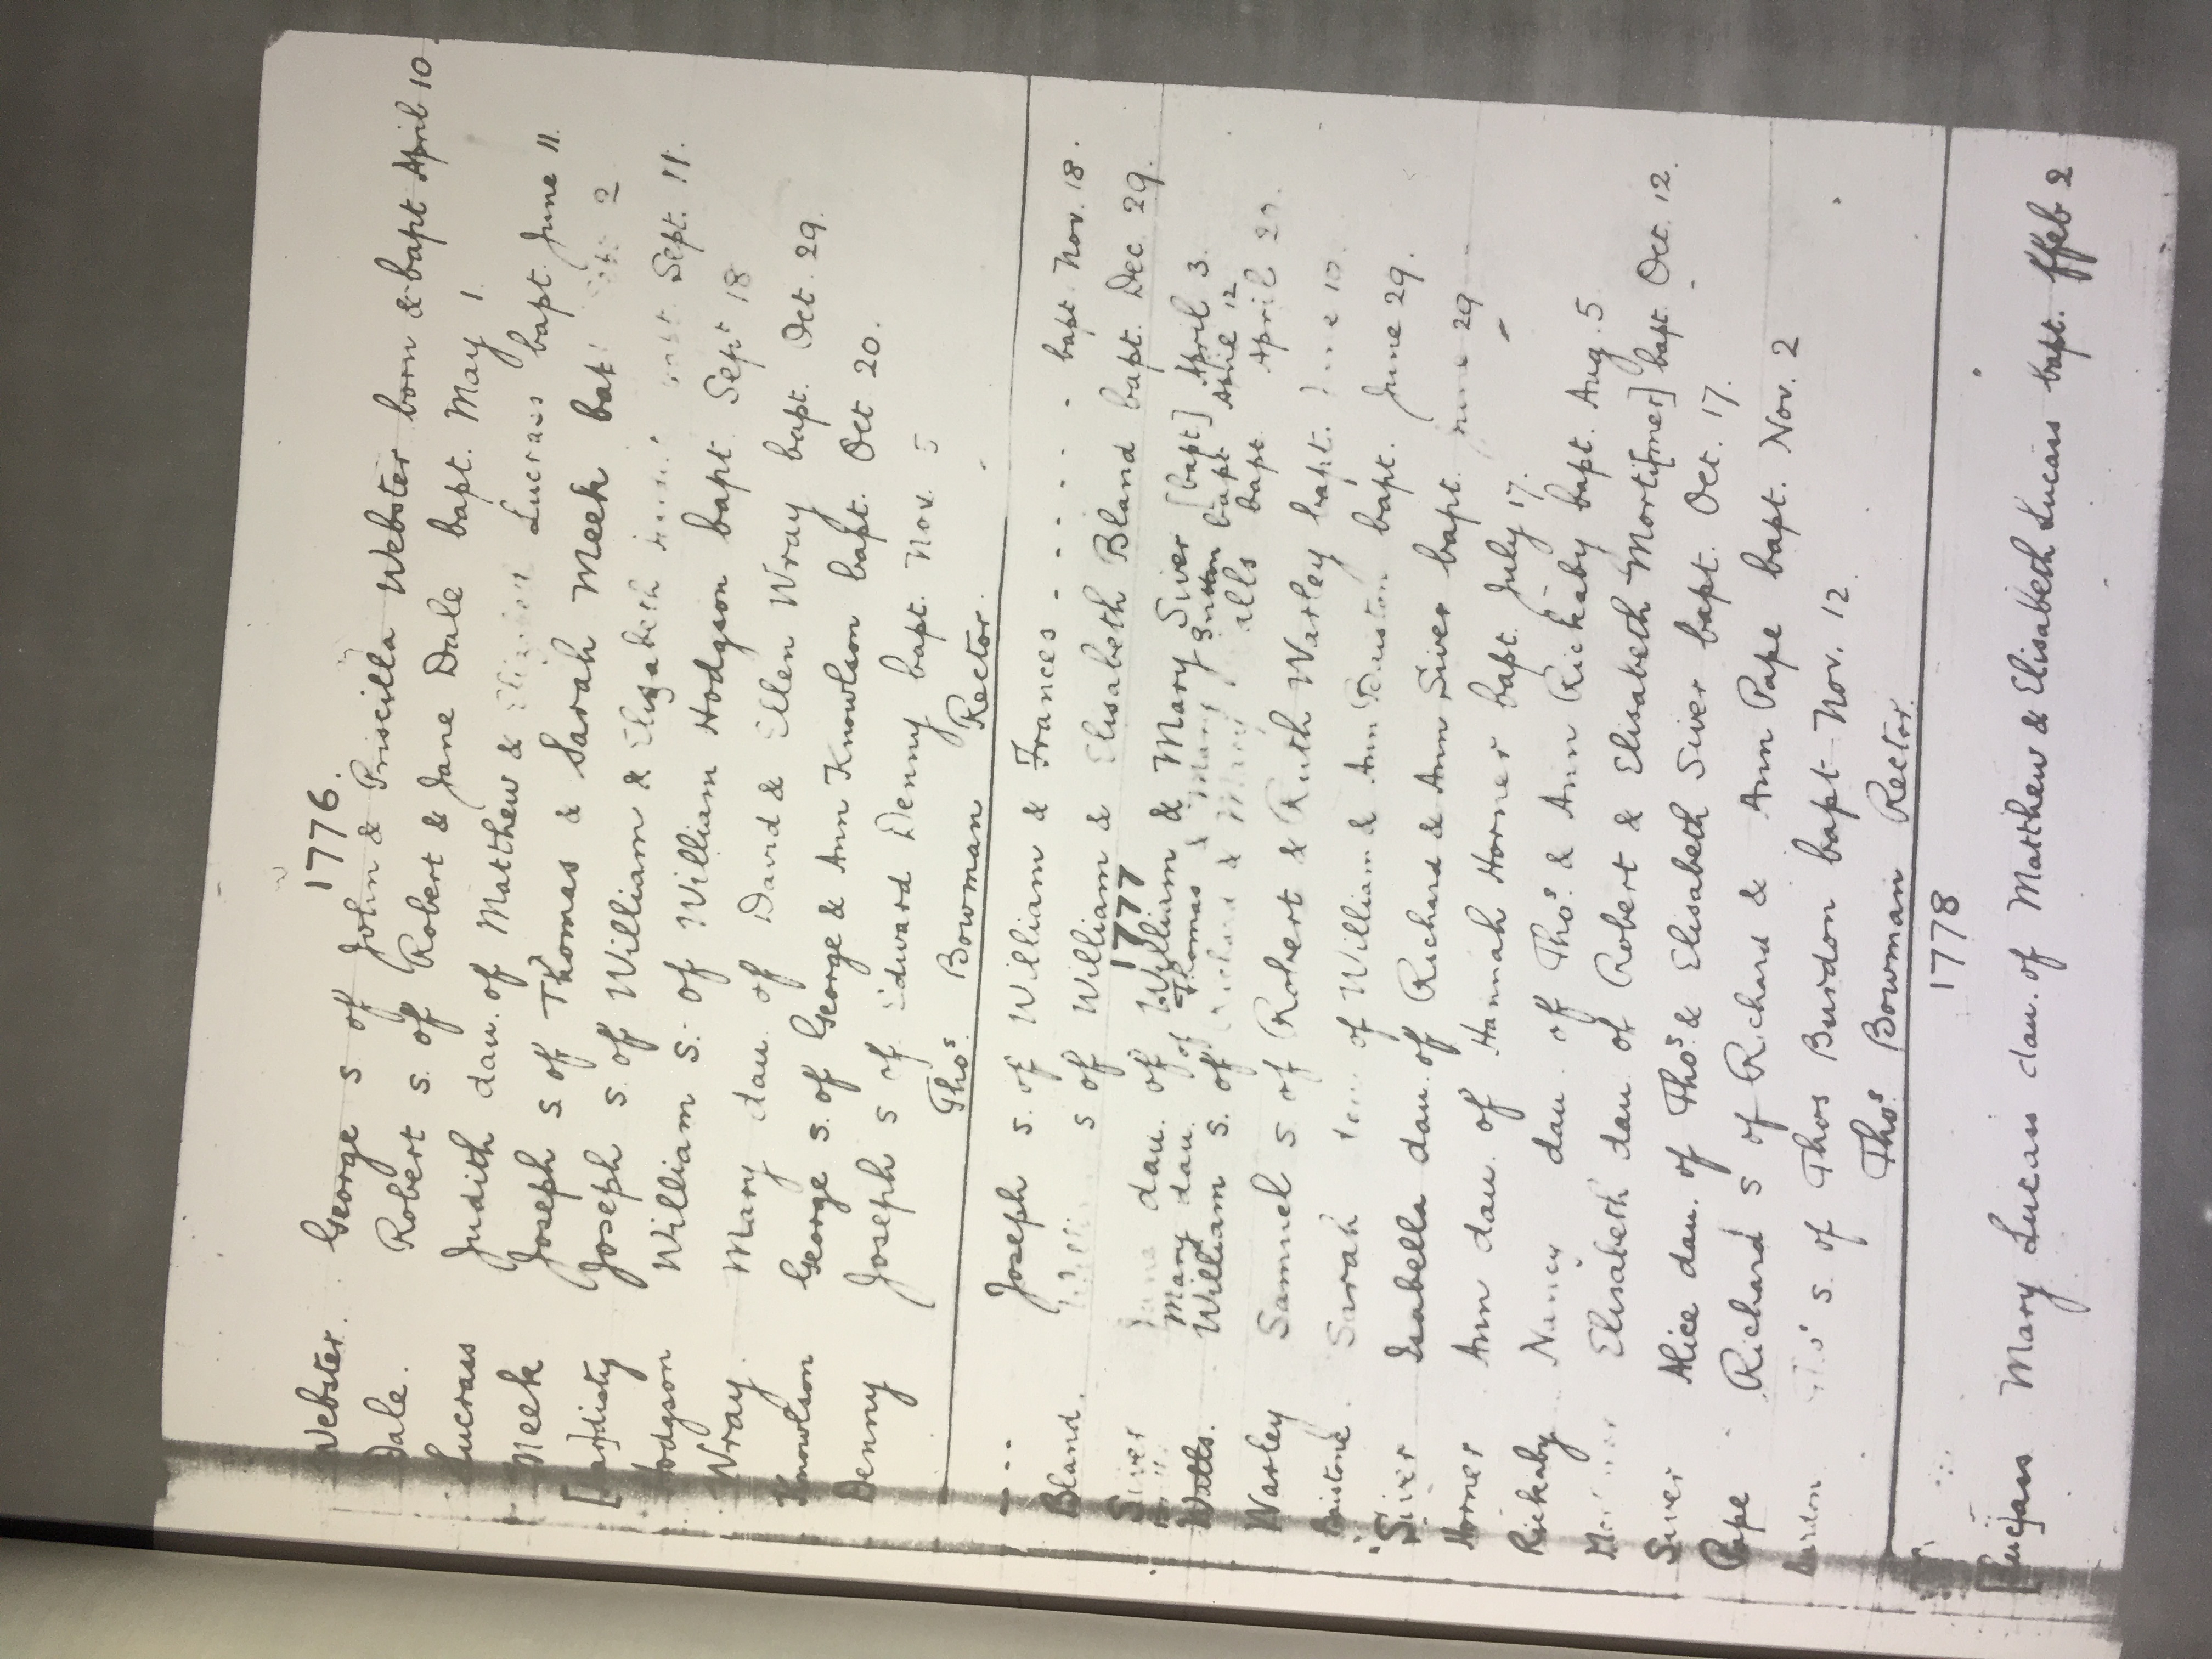 1776.
Webster. George s of John & Priscilla Webster born & bapt April 10.
Dale. Robert s. of Robert & Jane Dale bapt. May 1.
Lucrass Judith dau. of Matthew & Lucrass bapt. June 11.
Meek Joseph s. of Thomas & Sarah Meek bapt 2
[ardisty Joseph s. of William & Elizabeth Sept. 11.
Hodgson William s. of William Hodgson bapt. Sept 18
Wray. Mary dau. of David & Ellen Wray bapt. Oct. 29.
Knowlson George s. of George & Ann Knowlson bapt. Oct 20.
Denny Joseph s of Edward Denny bapt. Nov. 5
Thos. Bowman Rector.
--- Joseph s. of William & Frances - - - - - bapt. Nov. 18.
Bland. s of William & Elisabeth Bland bapt. Dec. 29.
1777
Siver dau. of William & Mary Siver [bapt] April 3.
Mary dau. of Thomas & Mary bapt. 12
Watts. William s. of & Mary bapt April
Warley Samuel s of Robert & Ruth Warley bapt. June 10.
Sarah of William & Ann bapt. June 29.
Siver Isabella dau. of Richard & Ann Siver bapt. June 29
Horner Ann dau. of Hannah Horner bapt. July 17.
Rickaby Nancy dau. of Thos. & Ann Rickaby bapt. Aug. 5
Elisabeth dau. of Robert & Elisabeth Morti[mer] bapt. Oct. 12.
Siver Alice dau. of Thos. & Elisabeth Siver bapt. Oct. 17.
Pape Richard s of Richard & Ann Pape bapt. Nov. 2
Burdon s. of Thos Burdon bapt Nov. 12
Thos. Bowman Rector.
1778
[Luc]ass Mary Lucass dau. of Matthew & Elisabeth Lucass bapt. ffeb 2